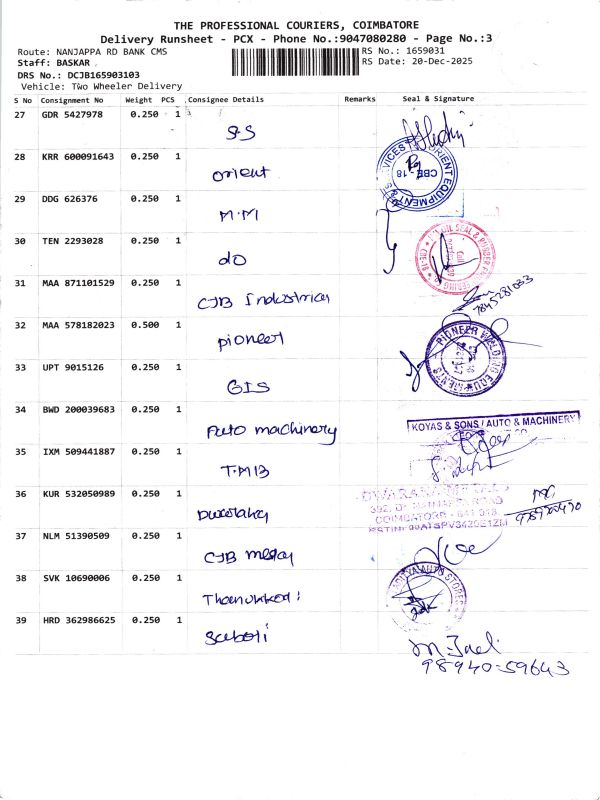 THE PROFESSIONAL COURIERS, COIMBATORE
Delivery Runsheet - PCX - Phone No.:9047080280 - Page No.:3
Route: NANJAPPA RD BANK CMS RS No.: 1659031
Staff: BASKAR . RS Date: 20-Dec-2025
DRS No.: DCJB165903103
Vehicle: Two Wheeler Delivery
S No Consignment No Weight PCS Consignee Details Remarks Seal & Signature
27 GDR 5427978 0.250 1
S-S
28 KRR 600091643 0.250 1
orient
29 DDG 626376 0.250 1
M.M
30 TEN 2293028 0.250 1
do
31 MAA 871101529 0.250 1
CJB Industries
7845281033
32 MAA 578182023 0.500 1
pioneer
33 UPT 9015126 0.250 1
GIS
34 BWD 200039683 0.250 1
KOYAS & SONS / AUTO & MACHINERY
Auto machinery
35 IXM 509441887 0.250 1
T-MB
36 KUR 532050989 0.250 1
37 NLM 51390509 0.250 1
CJB
38 SVK 10690006 0.250 1
39 HRD 362986625 0.250 1
98940-59643